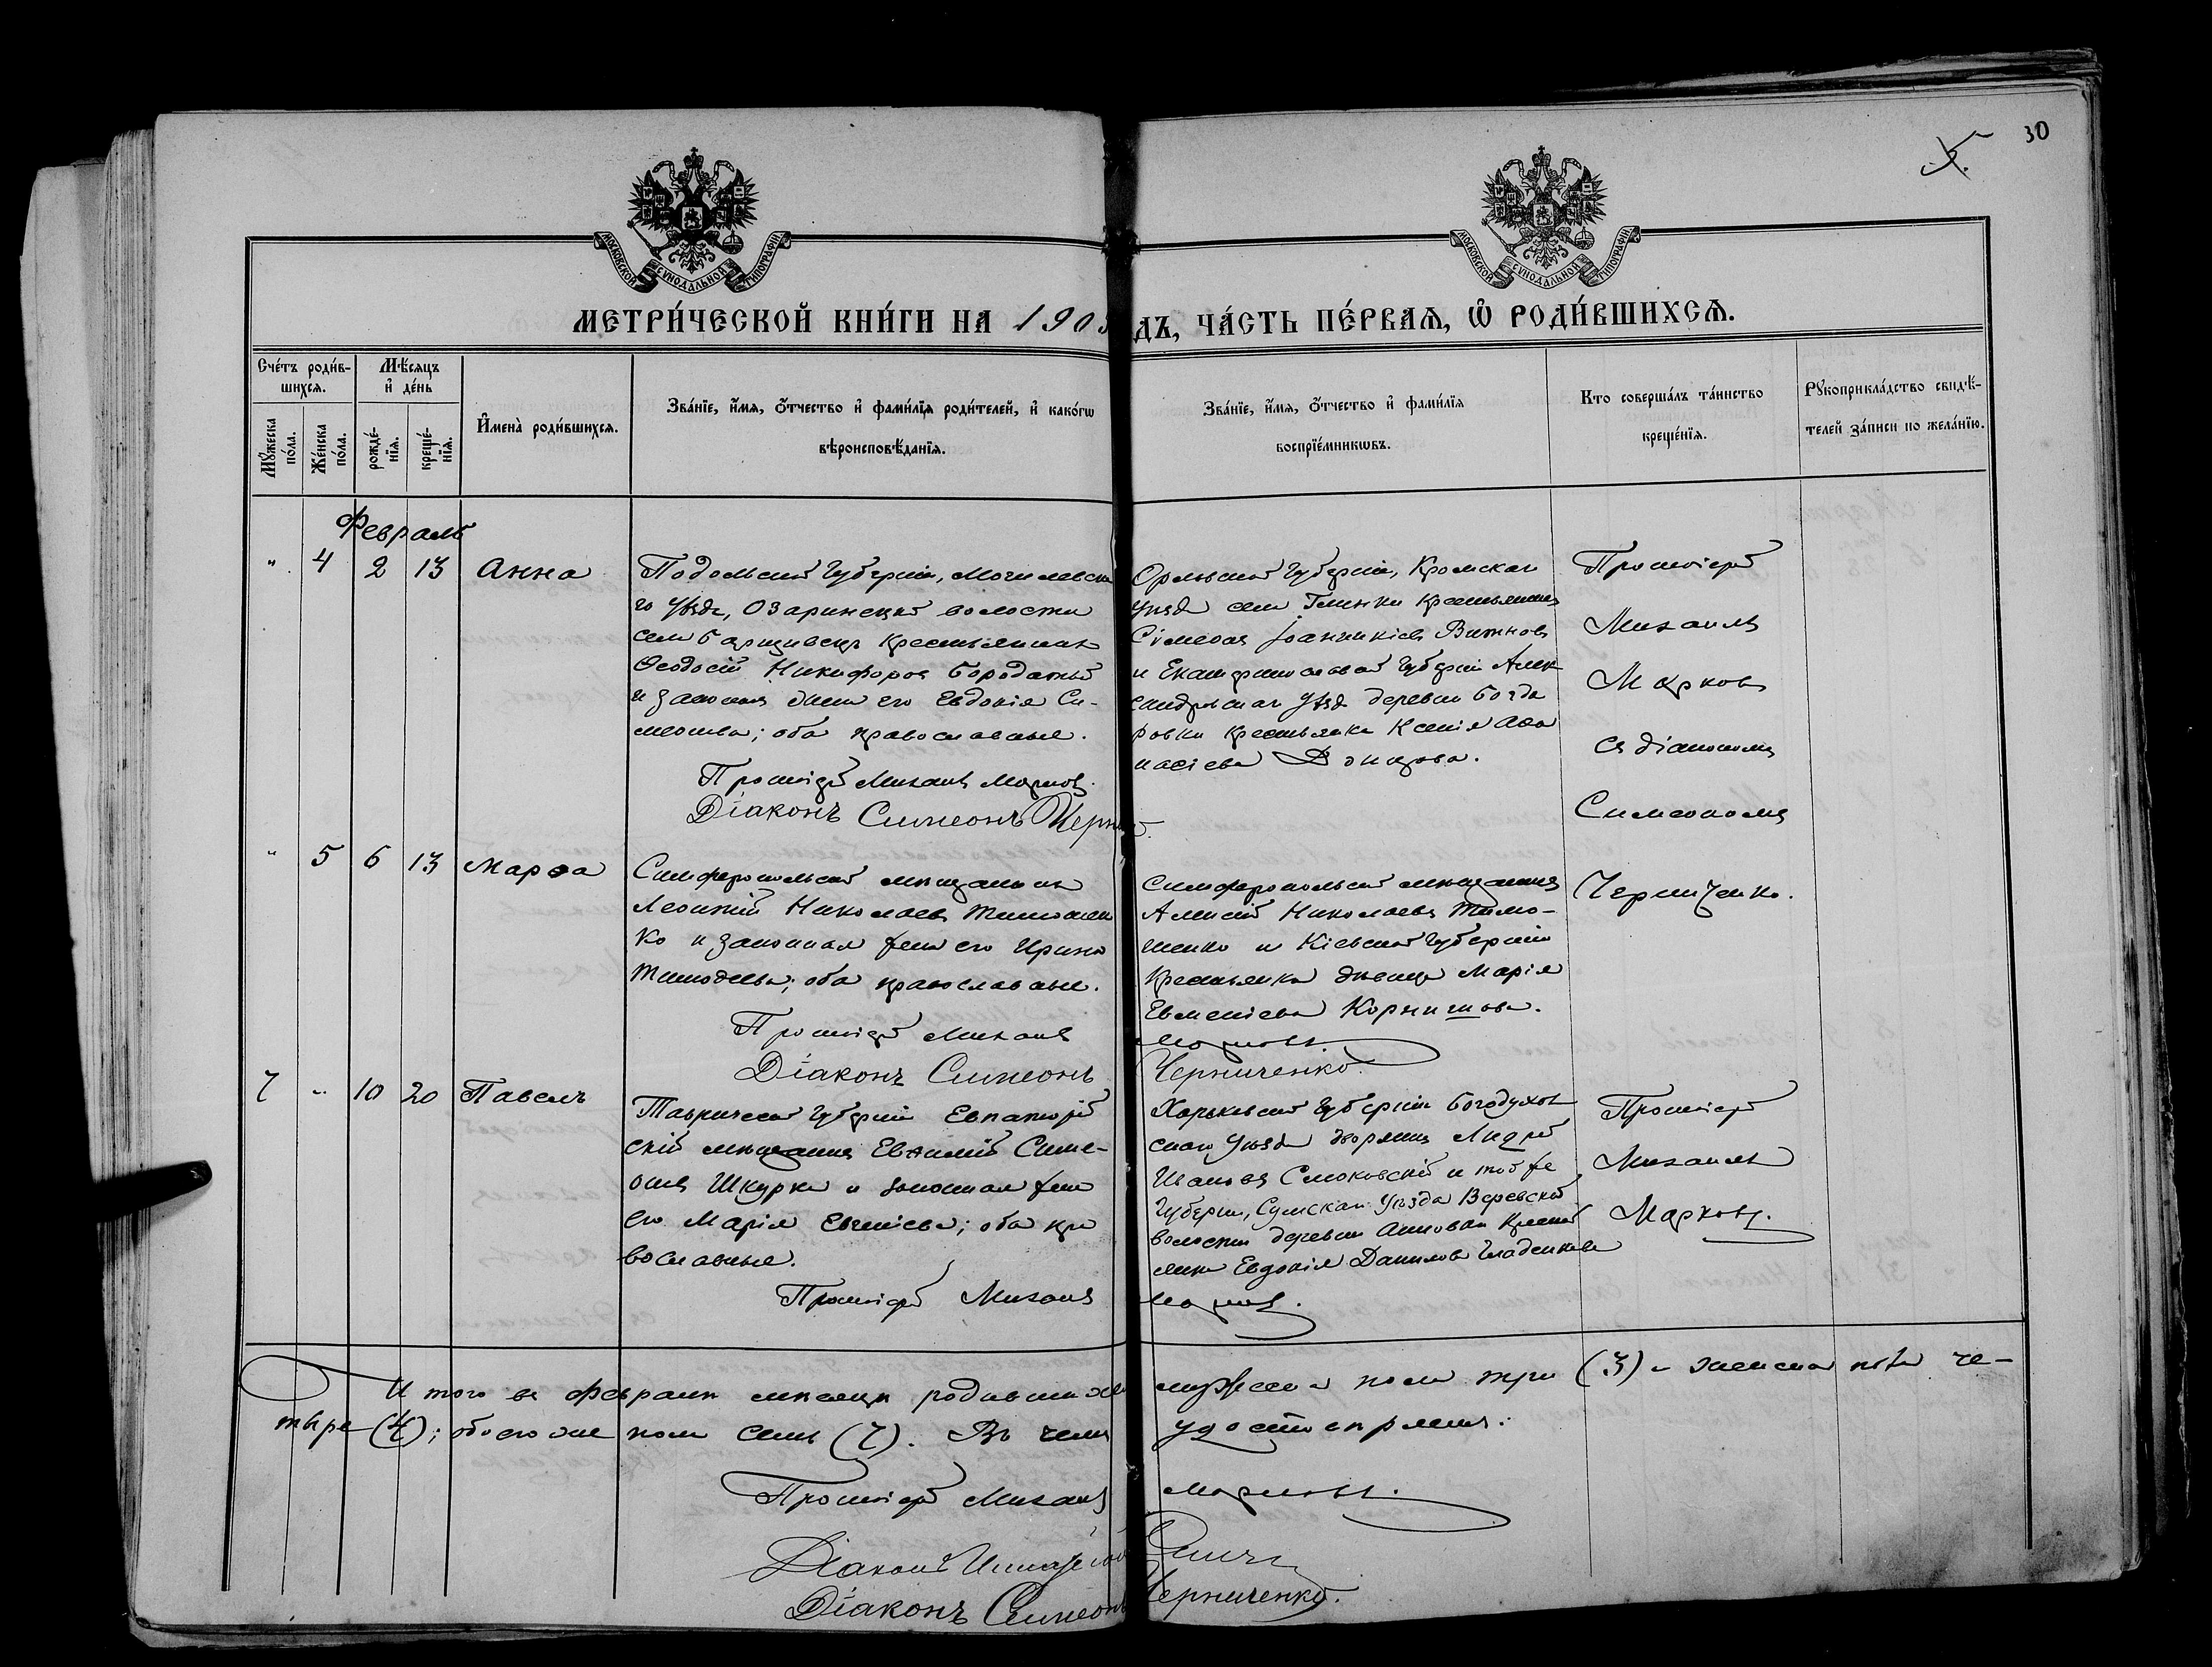 30
5.
МОСКОВСКОЙ СѴНОДАЛЬНОЙ ТИПОГРАФІИ
МОСКОВСКОЙ СѴНОДАЛЬНОЙ ТИПОГРАФІИ
МЕТРИ́ЧЕСКОЙ КНИ́ГИ НА 1903 ДЪ, ЧА́СТЬ ПЕ́РВАѦ, Ѡ҆ РОДИ́ВШИХСѦ.
Сче́тъ роди́в-
шихсѧ.
Мѣ́сѧцъ
и҆ де́нь
Мꙋ́жеска по́ла.
Же́нска по́ла.
рожде́-
нїѧ.
креще́-
нїѧ.
И҆мена̀ роди́вшихсѧ.
Зва́нїе, и҆́мѧ, ѻ҆́тчество и҆ фами́лїѧ роди́телей, и҆ како́гѡ
вѣроисповѣ́данїѧ.
Зва́нїе, и҆́мѧ, ѻ҆́тчество и҆ фами́лїѧ
воспрїе́мникѡвъ.
Кто соверша́лъ та́инство
креще́нїѧ.
Рꙋкоприкла́дство свидѣ́-
телей за́писи по жела́нїю.
Февраль
" 4 2 13 Анна
Подольской Губерніи, Могилевска
го уѣзда, Озаринецкой волости
села крестьянинъ
Ѳеодосій Никифоровъ Бородатый
и законная жена его Евдокія Си-
меонова; оба православные.
Протоіерей Михаилъ Марковъ.
Діаконъ Симеонъ Черни
Орловской Губерніи, Кромскаго
уѣзда села Глинки крестьянинъ
Сімеонъ Іоанникіевъ
и Екатеринославской Губерніи Алек
сандровскаго уѣзда деревни Богда
новки крестьянка Ксенія Аѳа
насіева
Протоіерей
Михаилъ
Марковъ
съ діакономъ
Симеономъ
Черниченко.
" 5 6 13 Марѳа
Симферопольскій мѣщанинъ
Леонтій Николаевъ Тимошен
ко и законная жена его Ирина
оба православные.
Протоіерей Михаилъ
Марковъ.
Діаконъ Симеонъ
Черниченко.
Симферопольскій мѣщанинъ
Алексій Николаевъ Тимо-
шенко и Кіевской Губерніи
крестьянка дѣвица Марія
Евменіева Корнишова.
7 " 10 20 Павелъ
Таврической Губерніи Евпаторій
скій мѣщанинъ Евѳимій Симе-
оновъ Шкурка и законная жена
его Марія Евгеніева; оба пра
вославные.
Протоіерей Михаилъ
Марковъ.
Харьковской Губерніи Богодухов
скаго уѣзда дворянинъ Андрей
Ивановъ Смоковскій и той же
Губерніи, Сумскаго Уѣзда
волости деревни крестьян
янка Евдокія Данилова Гладенкова
Протоіерей
Михаилъ
Марковъ.
Итого въ февралѣ мѣсяцѣ родившихся мужеска пола три (3) и женска пола че-
тыре (4); обоего же пола семь (7). Въ чемъ удостовѣряемъ:
Протоіерей Михаилъ Марковъ.
Діаконъ
Діаконъ Симеонъ Черниченко.